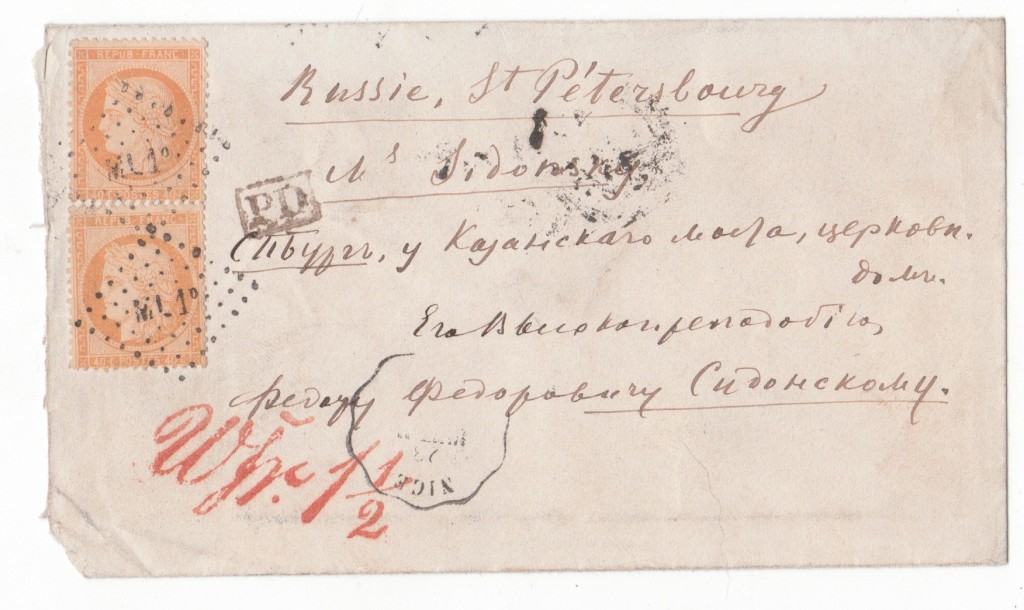 REPUB · FRANC ·
ML 1°
REPUB · FRANC ·
ML 1°
40 · C · POSTES · 40 · C
PD
Russie, St Pétersbourg
Mr Sidonsky,
СПбургъ, у Казанскаго моста, церковн.
домъ.
Его Высокопреподобію,
Федору Федоровичу Сидонскому.
Wfr. 1 1/2
23
NICE